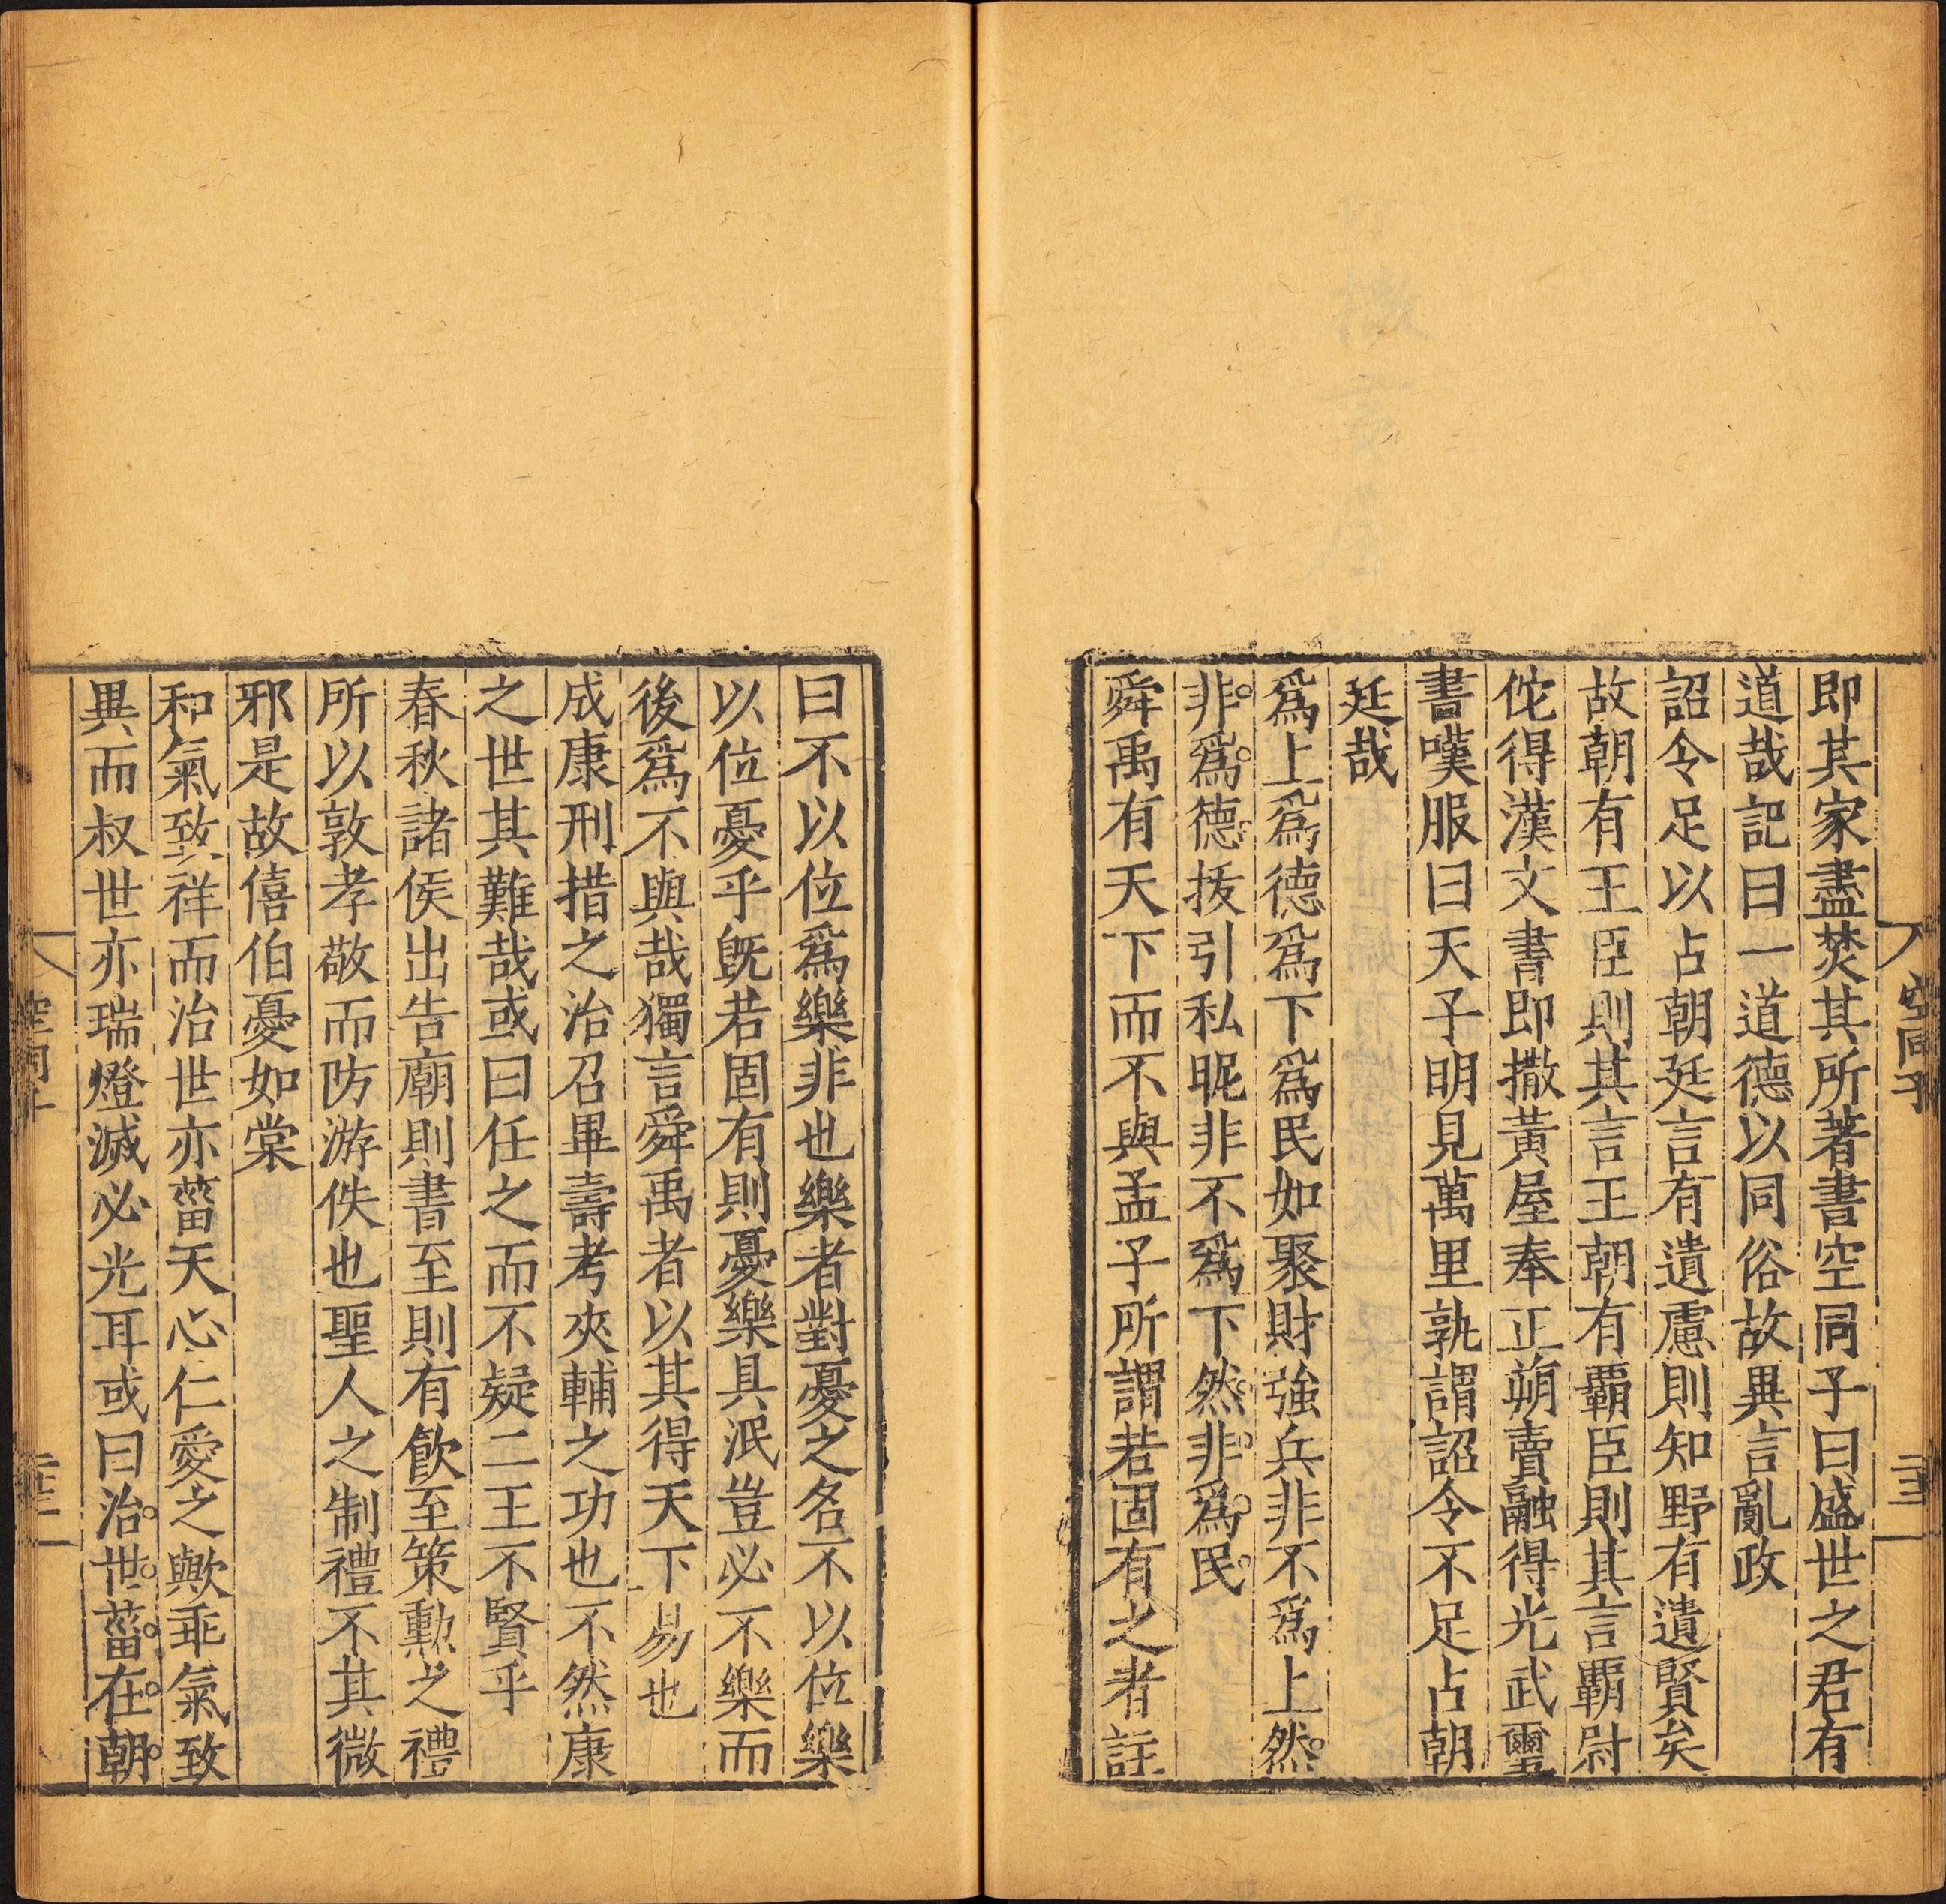 空同子
即其家盡焚其所著書空同子曰盛世之君有
道哉記曰一道德以同俗故異言亂政
詔令足以占朝廷言有遺慮則知野有遺賢矣
故朝有王臣則其言王朝有覇臣則其言覇尉
佗得漢文書即撒黃屋奉正朔賣融得光武璽
書嘆服曰天子明見萬里孰謂詔令不足占朝
廷哉
爲上爲德爲下爲民如聚財強兵非不爲上然
非爲德援引私昵非不爲下然非爲民
舜禹有天下而不與孟子所謂若固有之者註
曰不以位爲樂非也樂者對憂之名不以位樂
以位憂乎旣若固有則憂樂具泯豈必不樂而
後爲不與哉獨言舜禹者以其得天下易也
成康刑措之治召畢壽考夾輔之功也不然康
之世其難哉或曰任之而不疑二王不賢乎
春秋諸侯出告廟則書至則有飮至策勳之禮
所以敦孝敬而防游佚也聖人之制禮不其微
邪是故僖伯憂如棠
和氣致祥而治世亦菑天心仁愛之歟乖氣致
異而叔世亦瑞燈滅必光耳或曰治世菑在朝
空同子